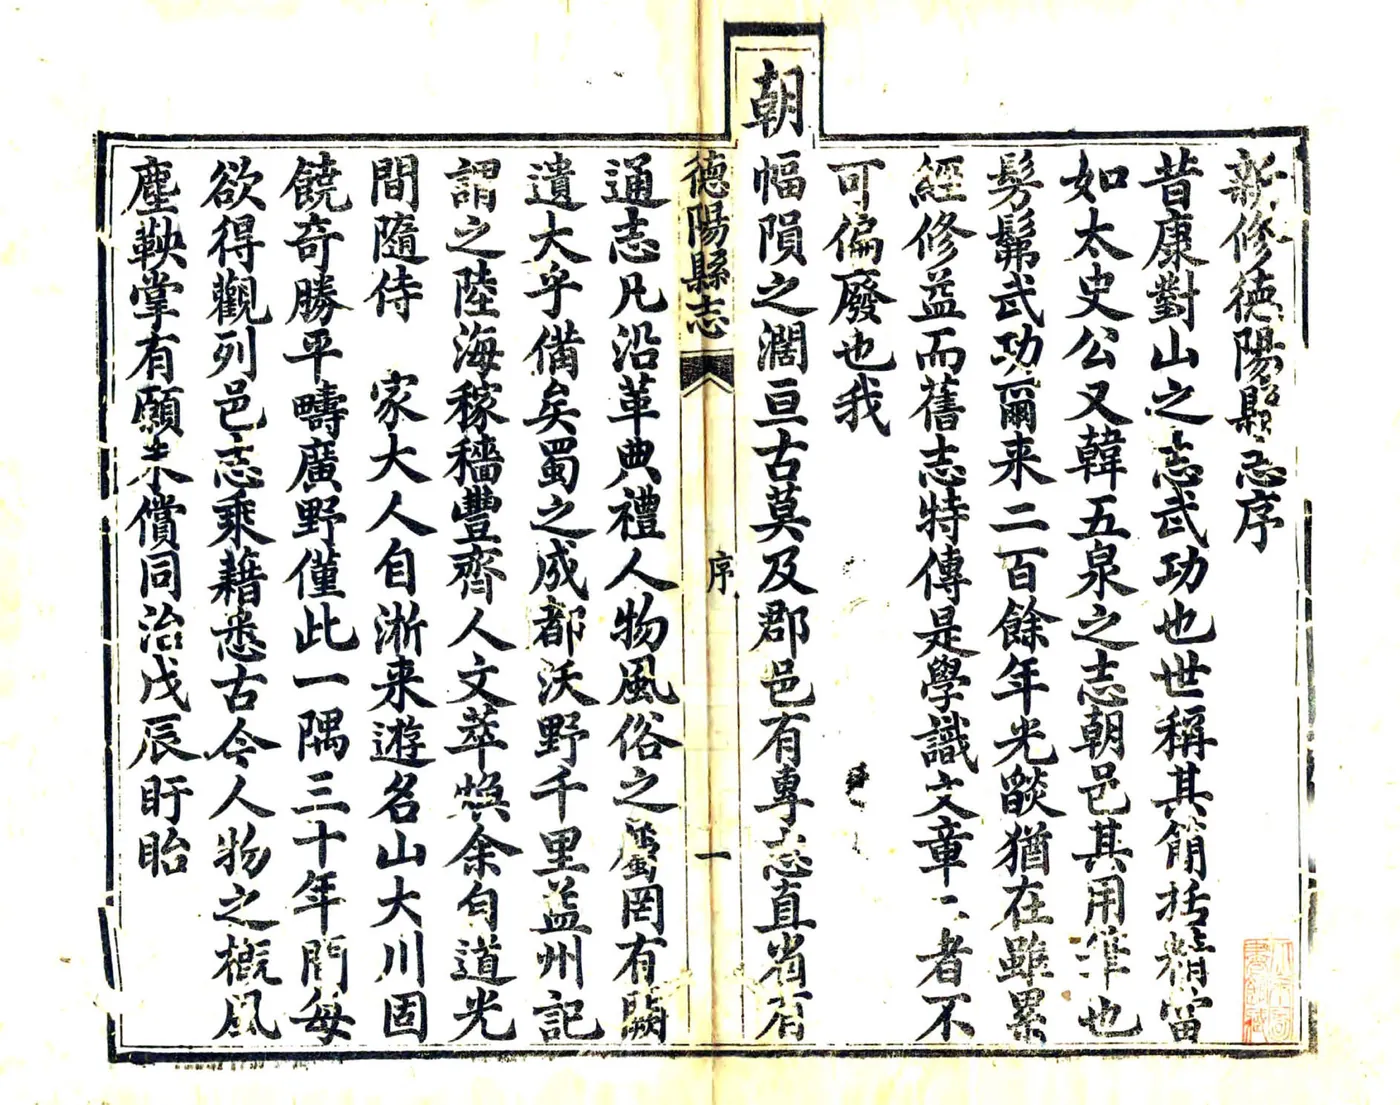 新修德陽縣志序
昔康對山之志武功也世稱其簡括精當
如太史公又韓五泉之志朝邑其用筆也
髣髴武功爾来二百餘年光燄猶在雖累
經修益而舊志特傳是學識文章二者不
可偏廢也我
朝幅隕之濶亘古莫及郡邑有專志直省有
德陽縣志
序
一
通志凡沿革典禮人物風俗之屬罔有闕
遺大乎備矣蜀之成都沃野千里益州記
謂之陸海稼穡豐齊人文萃煥余自道光
間隨侍 家大人自淅来遊名山大川固
饒奇勝平疇廣野僅此一隅三十年間每
欲得觀列邑志乘藉悉古今人物之概風
塵鞅掌有願未償同治戊辰盱眙